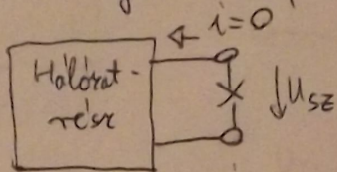 i=0
Hálózat-
rész
u_SZ